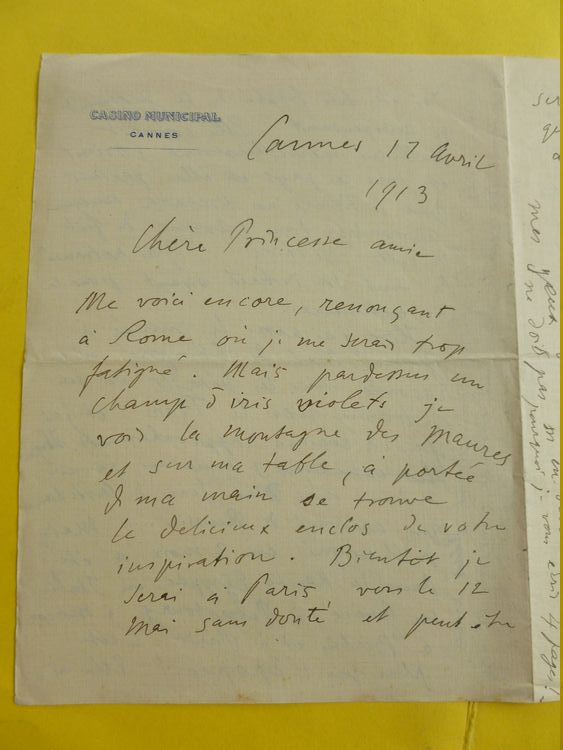 CASINO MUNICIPAL
CANNES
Cannes 17 Avril
1913
Chère Princesse amie
Me voici encore, renonçant
à Rome où je me serais trop
fatigué. Mais pardessus un
champ d'iris violets je
vois la montagne des Maures
et sur ma table, à portée
de ma main se trouve
le delicieux enclos de votre
inspiration. Bientôt je
serai à Paris vers le 12
Mai sans doute et peut être
mes yeux
je ne dois pas
vous écris 4 pages!